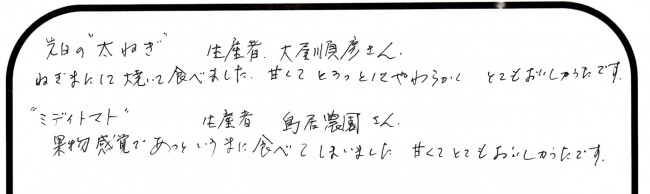 先日の"太ねぎ" 生産者 大屋順彦さん.
ねぎまにして焼いて食べました. 甘くてとろっとしてやわらかく とてもおいしかったです.
"ミディトマト" 生産者 鳥居農園さん.
果物感覚であっというまに食べてしまいました 甘くてとてもおいしかったです.